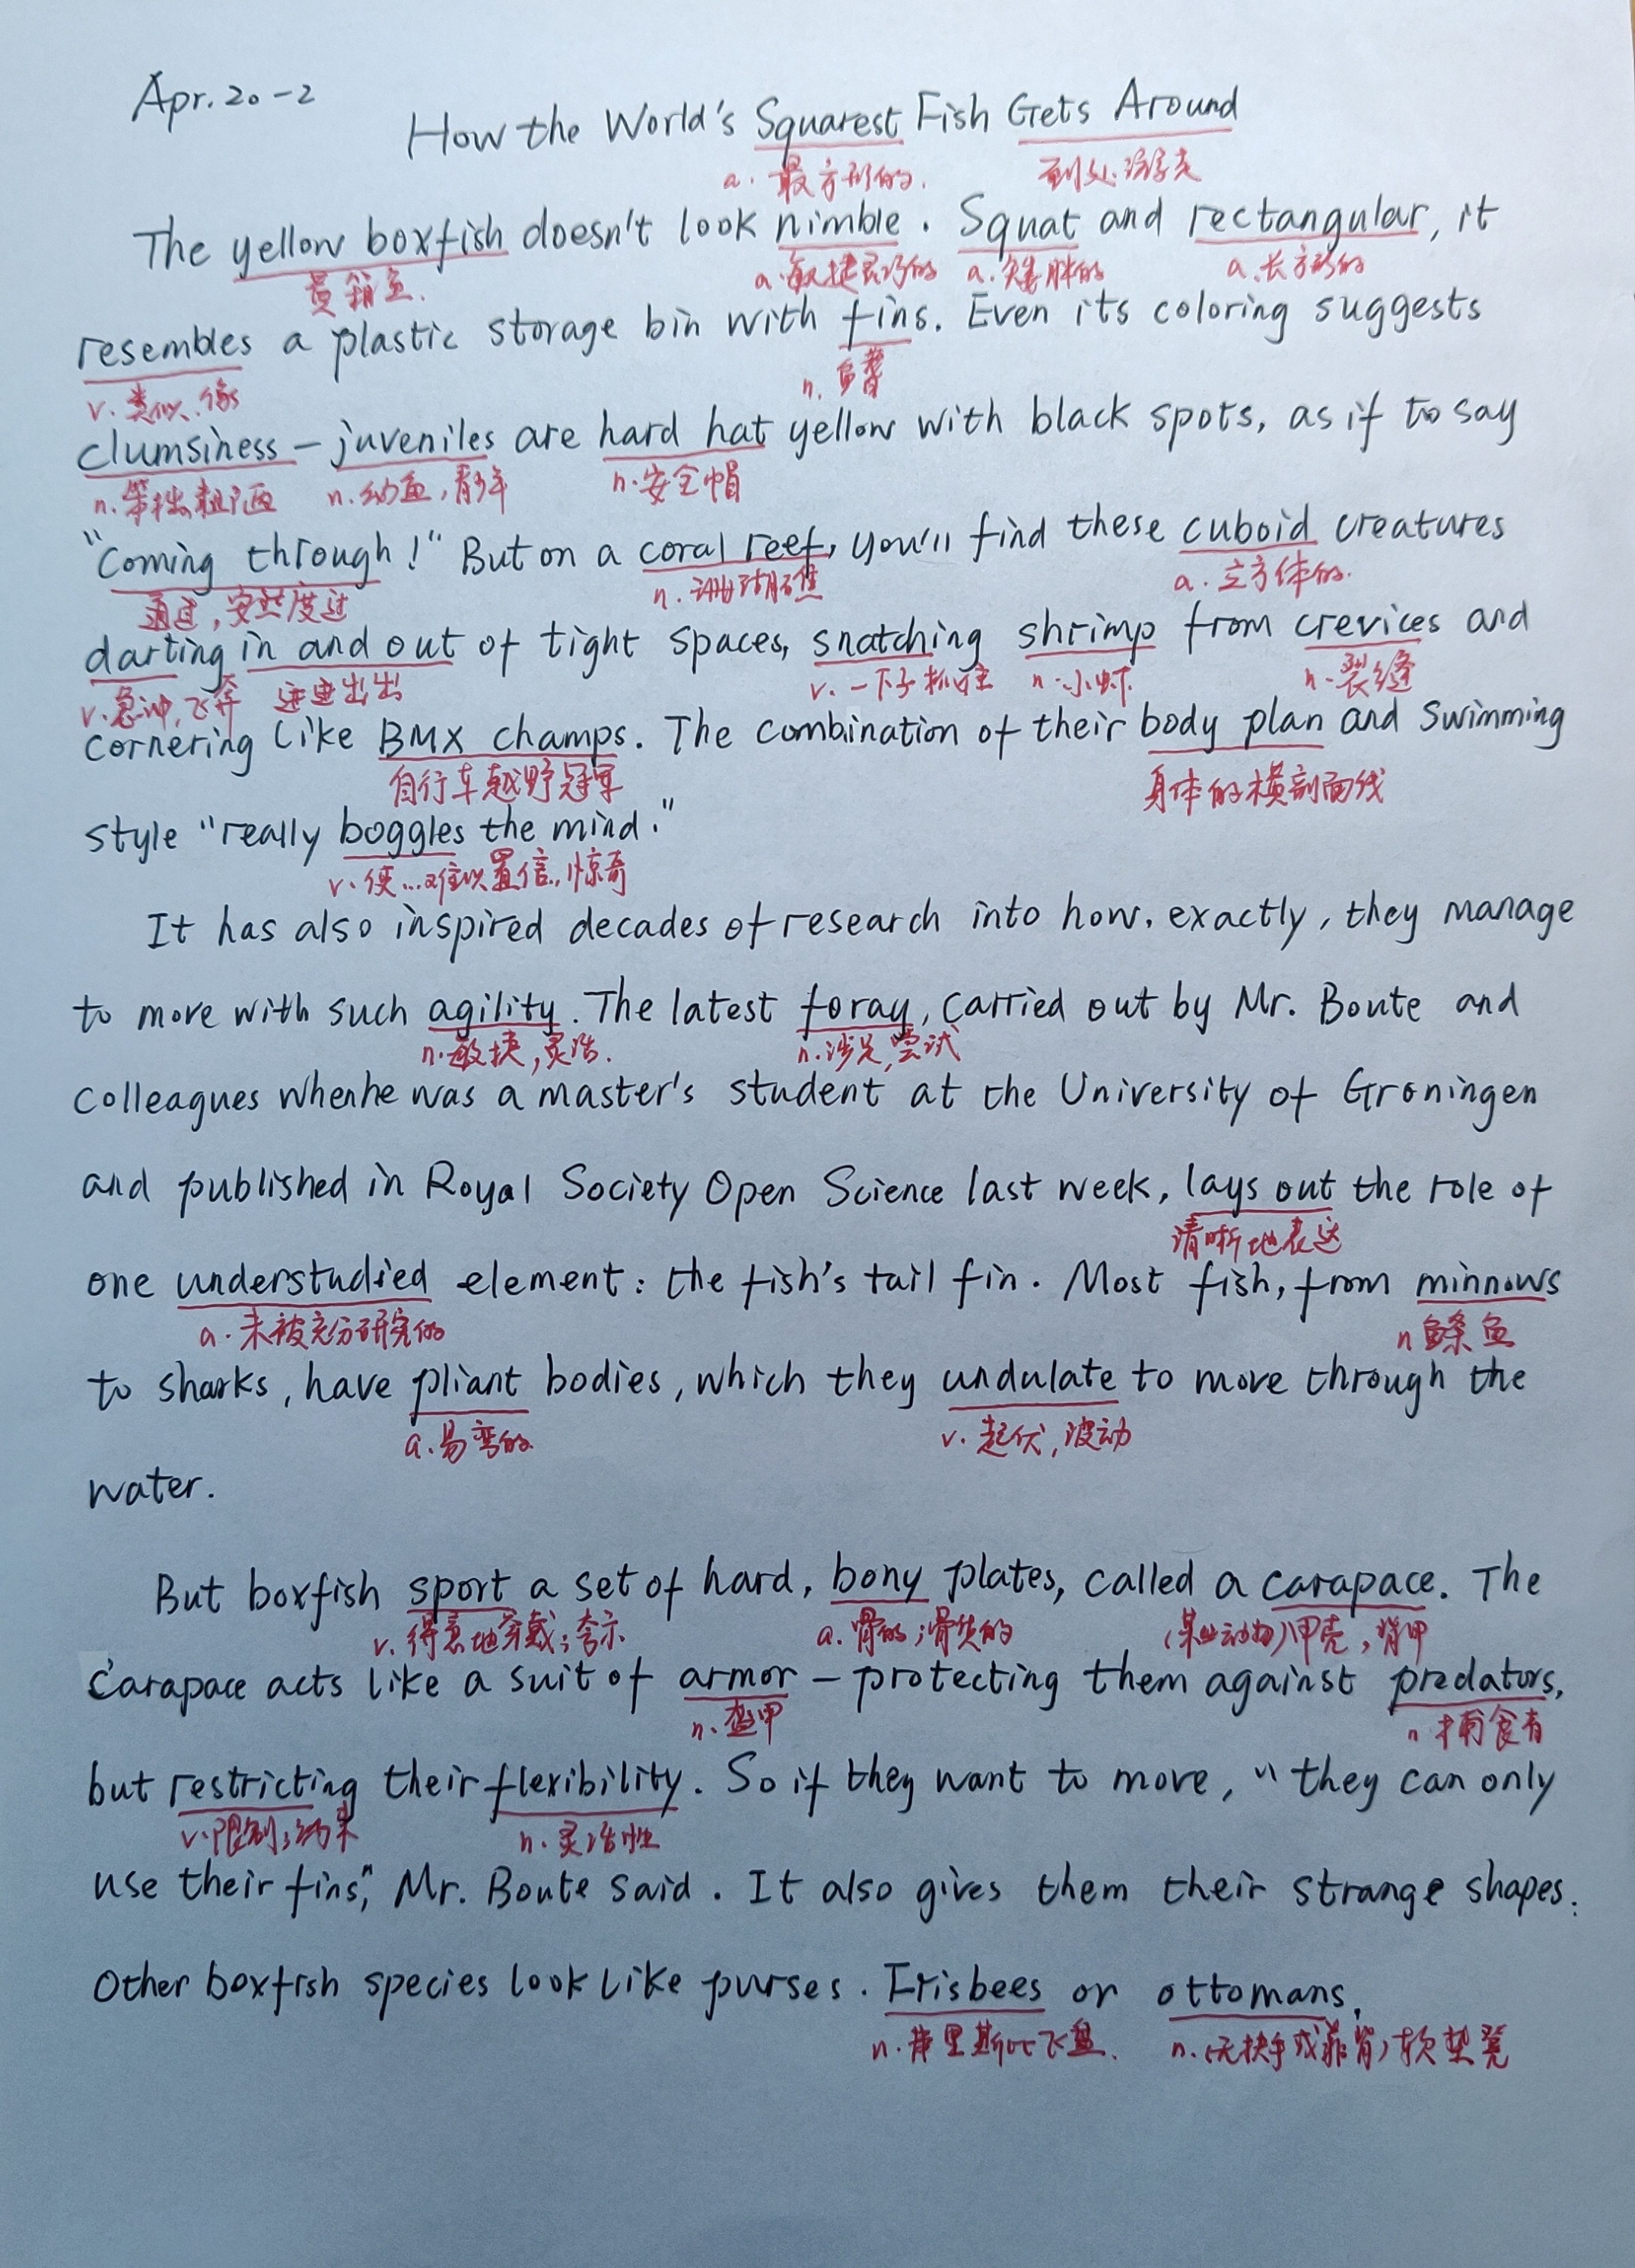 Apr. 20-2
How the World's Squarest Fish Gets Around
a. 最方形的. 到处游走
The yellow boxfish doesn't look nimble. Squat and rectangular, it
黄箱鱼. a.敏捷灵巧的 a.矮胖的 a.长方形的
resembles a plastic storage bin with fins. Even its coloring suggests
v. 类似, 像 n. 鱼鳍
clumsiness – juveniles are hard hat yellow with black spots, as if to say
n.笨拙,粗陋 n.幼鱼,青少年 n.安全帽
"Coming through!" But on a coral reef, you'll find these cuboid creatures
通过,安然度过 n.珊瑚礁 a.立方体的.
darting in and out of tight spaces, snatching shrimp from crevices and
v.急冲,飞奔 进进出出 v. 一下子抓住 n.小虾 n.裂缝
cornering like BMX champs. The combination of their body plan and swimming
自行车越野冠军 身体的横剖面线
style "really boggles the mind."
v.使...难以置信,惊奇
It has also inspired decades of research into how, exactly, they manage
to move with such agility. The latest foray, carried out by Mr. Boute and
n.敏捷,灵活. n.涉足,尝试
colleagues when he was a master's student at the University of Groningen
and published in Royal Society Open Science last week, lays out the role of
清晰地表达
one understudied element: the fish's tail fin. Most fish, from minnows
a.未被充分研究的 n 鲦鱼
to sharks, have pliant bodies, which they undulate to move through the
a.易弯的 v.起伏,波动
water.
But boxfish sport a set of hard, bony plates, called a carapace. The
v.得意地穿戴;夸示 a.骨的;骨质的 (某些动物)甲壳,背甲
carapace acts like a suit of armor – protecting them against predators,
n.盔甲 n.捕食者
but restricting their flexibility. So if they want to move, "they can only
v.限制;约束 n.灵活性
use their fins," Mr. Boute said. It also gives them their strange shapes.
Other boxfish species look like purses. Frisbees or ottomans.
n.弗里斯比飞盘. n.(无扶手或靠背)软垫凳